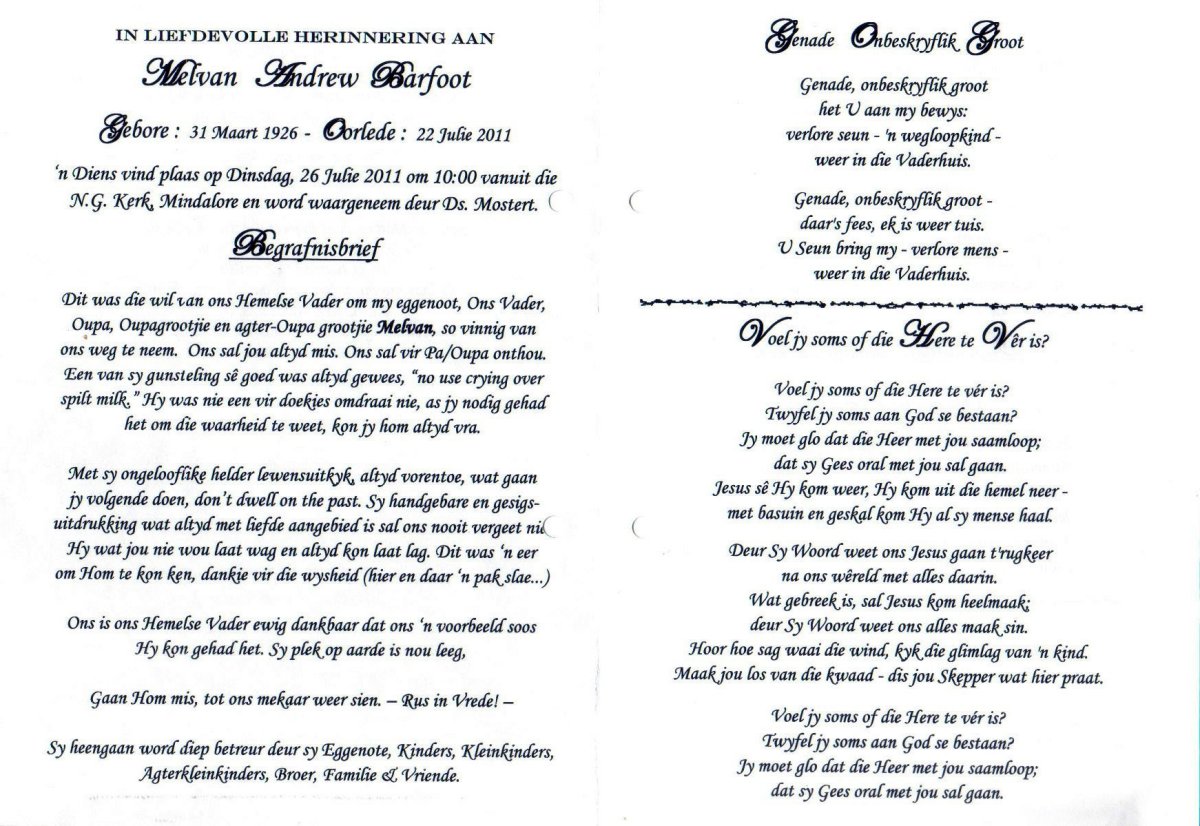 IN LIEFDEVOLLE HERINNERING AAN
Melvan Andrew Barfoot
Gebore : 31 Maart 1926 - Oorlede : 22 Julie 2011
‘n Diens vind plaas op Dinsdag, 26 Julie 2011 om 10:00 vanuit die
N.G. Kerk, Mindalore en word waargeneem deur Ds. Mostert.
Begrafnisbrief
Dit was die wil van ons Hemelse Vader om my eggenoot, Ons Vader,
Oupa, Oupagrootjie en agter-Oupa grootjie Melvan, so vinnig van
ons weg te neem. Ons sal jou altyd mis. Ons sal vir Pa/Oupa onthou.
Een van sy gunsteling sê goed was altyd gewees, “no use crying over
spilt milk.” Hy was nie een vir doekies omdraai nie, as jy nodig gehad
het om die waarheid te weet, kon jy hom altyd vra.
Met sy ongelooflike helder lewensuitkyk, altyd vorentoe, wat gaan
jy volgende doen, don’t dwell on the past. Sy handgebare en gesigs-
uitdrukking wat altyd met liefde aangebied is sal ons nooit vergeet
Hy wat jou nie wou laat wag en altyd kon laat lag. Dit was ‘n eer
om Hom te kon ken, dankie vir die wysheid (hier en daar ‘n pak slae...)
Ons is ons Hemelse Vader ewig dankbaar dat ons ‘n voorbeeld soos
Hy kon gehad het. Sy plek op aarde is nou leeg,
Gaan Hom mis, tot ons mekaar weer sien. – Rus in Vrede! –
Sy heengaan word diep betreur deur sy Eggenote, Kinders, Kleinkinders,
Agterkleinkinders, Broer, Familie & Vriende.
Genade Onbeskryflik Groot
Genade, onbeskryflik groot
het U aan my bewys:
verlore seun - 'n wegloopkind -
weer in die Vaderhuis.
Genade, onbeskryflik groot -
daar's fees, ek is weer tuis.
U Seun bring my - verlore mens -
weer in die Vaderhuis.
Voel jy soms of die Here te Vêr is?
Voel jy soms of die Here te vér is?
Twyfel jy soms aan God se bestaan?
Jy moet glo dat die Heer met jou saamloop;
dat sy Gees oral met jou sal gaan.
Jesus sê Hy kom weer, Hy kom uit die hemel neer -
met basuin en geskal kom Hy al sy mense haal.
Deur Sy Woord weet ons Jesus gaan t'rugkeer
na ons wêreld met alles daarin.
Wat gebreek is, sal Jesus kom heelmaak;
deur Sy Woord weet ons alles maak sin.
Hoor hoe sag waai die wind, kyk die glimlag van 'n kind.
Maak jou los van die kwaad - dis jou Skepper wat hier praat.
Voel jy soms of die Here te vér is?
Twyfel jy soms aan God se bestaan?
Jy moet glo dat die Heer met jou saamloop;
dat sy Gees oral met jou sal gaan.